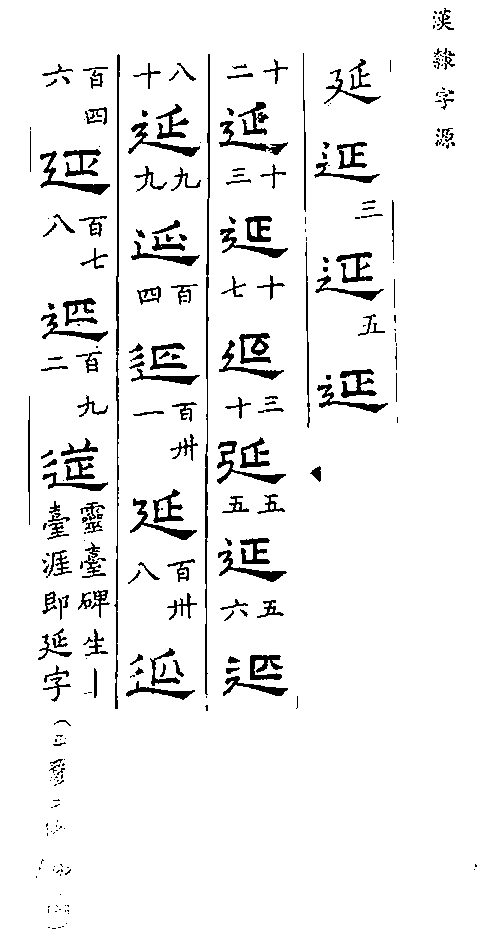 漢隸字源
延 延 三 延 五 延
十二 延 十三 延 十七 延 三十 延 五五 延 五六 延
八十 延 九九 延 百四 延 百卅一 延 百卅八 延
百四六 延 百七八 延 百九二 延 靈臺碑生｜臺涯即延字